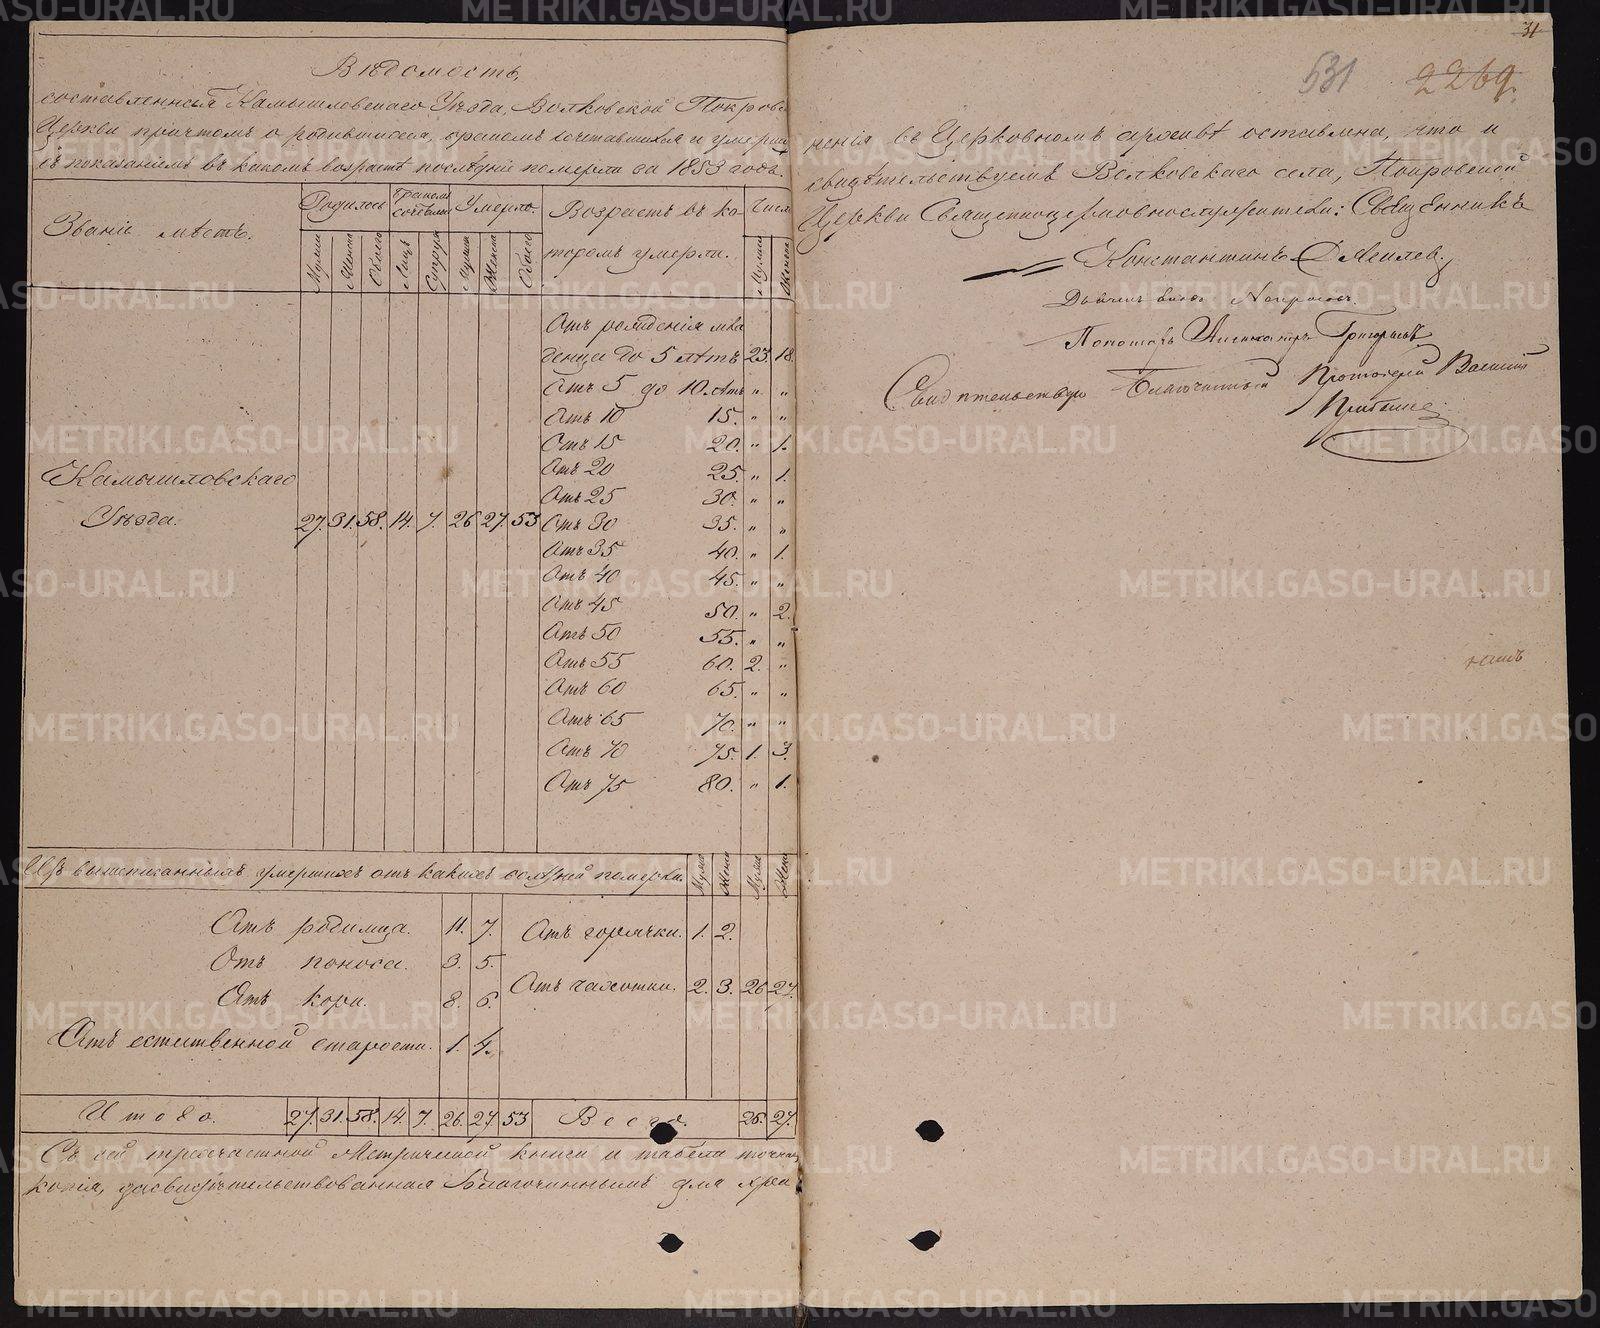 Вѣдомость,
составленная Камышловскаго Уѣзда, Волковской Покров
Церкви причтомъ о родившихся, бракомъ сочетавшихся и умерших
съ показаніемъ въ какомъ возрастѣ послѣдніе померли за 1853 годъ.
Званіе мѣстъ.
Родилось
Бракомъ сочетал
Умерло.
Возрастъ въ ко
тором умерли.
Число
Мужеска
Женска
Обоего
Лицъ
Супруж
Мужеска
Женска
Обоего
Мужеск
Женска
Камышловскаго
Уѣзда.
27. 31. 58. 14. 7. 26 27. 53
Отъ рожденія мла
денца до 5 лѣтъ 23. 18.
Отъ 5 до 10 лѣтъ „ „
Отъ 10 15. „ „
Отъ 15 20. „ 1.
Отъ 20 25. „ 1.
Отъ 25 30. „ „
Отъ 30 35. „ „
Отъ 35 40. „ 1.
Отъ 40 45. „ „
Отъ 45 50. „ 2.
Отъ 50 55. „ „
Отъ 55 60. 2. „
Отъ 60 65. „ „
Отъ 65 70. „ „
Отъ 70 75. 1. 3.
Отъ 75 80. „ 1.
Изъ вышеписанныхъ умершихъ отъ какихъ болѣзней померли.
Мужеск
Женск
Мужеск
Женск
Отъ родимца. 11. 7.
Отъ поноса. 3. 5.
Отъ кори. 8. 6.
Отъ естественной старости. 1. 4.
Отъ горячки. 1. 2.
Отъ чахотки. 2. 3. 26 27.
Итого. 27. 31. 58. 14. 7. 26. 27. 53 Всего. 26. 27.
Съ сей троечастной Метрической книги и табели точная
копія, засвидѣтельствованная Благочиннымъ для хра
31
531
2269.
ненія въ Церковномъ архивѣ оставлена, что и
свидѣтельствуемъ Волковскаго села, Покровской
Церкви Священноцерковнослужители: Священникъ
Константинъ
Пономарь Александръ Григорьевъ
Свидѣтельствую Благочинный Протоіерей Василій
METRIKI.GASO-URAL.RU